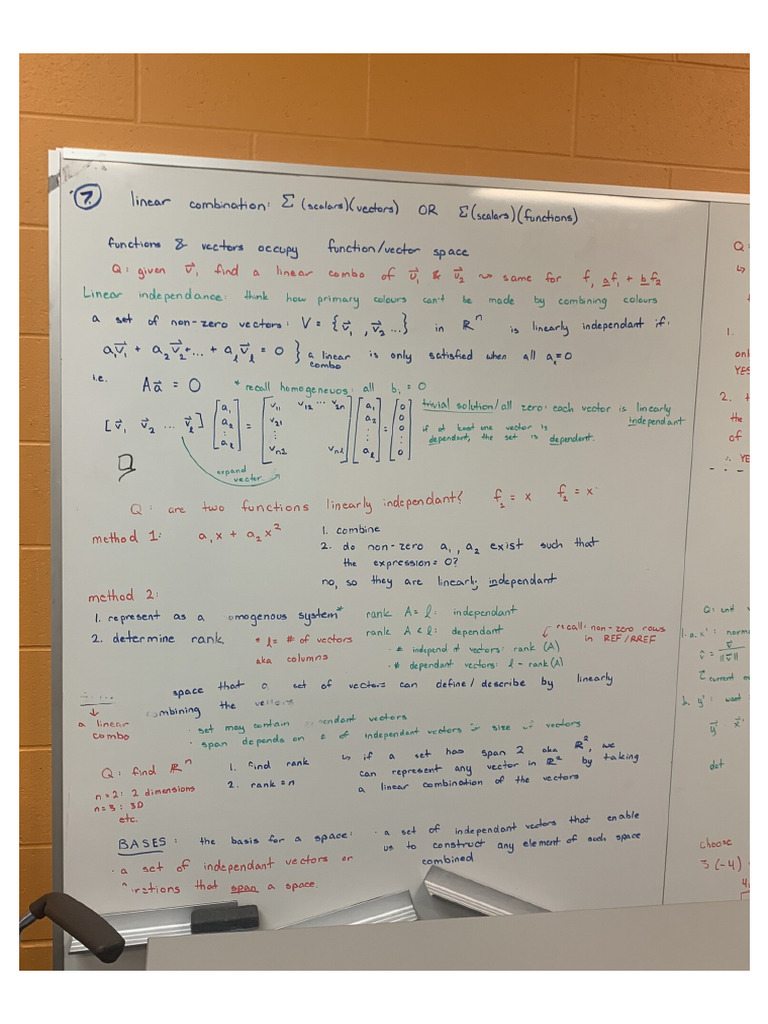 7. linear combination: Σ (scalars)(vectors) OR Σ(scalars)(functions)
functions & vectors occupy function/vector space
Q: given v⃗₁ find a linear combo of v⃗₁ & v⃗₂ ~> same for f, af₁ + bf₂
Linear independance: think how primary colours can't be made by combining colours
a set of non-zero vectors: V = {v⃗₁, v⃗₂ ...} in ℝⁿ is linearly independant if:
a₁v⃗₁ + a₂v⃗₂ + ... + aₗv⃗ₗ = 0 } a linear combo is only satisfied when all aₓ=0
i.e. Aa⃗ = 0 * recall homogeneuos: all b₁ = 0
[v⃗₁ v⃗₂ ... v⃗ₗ] [a₁ a₂ ⋮ aₗ] = [v₁₁ v₁₂ ... v₂ₙ v₂₁ ⋮ vₙ₁ vₙₗ] [a₁ a₂ ⋮ aₗ] = [0 0 ⋮ 0]
trivial solution/all zero: each vector is linearly
independant
if at least one vector is
dependant, the set is dependant.
expand
vector
Q: are two functions linearly independant? f₂ = x f₂ = x
method 1: a₁x + a₂x²
1. combine
2. do non-zero a₁, a₂ exist such that
the expression = 0?
no, so they are linearly independant
method 2:
1. represent as a omogenous system*
2. determine rank
* l = # of vectors
aka columns
rank A = l: independant
rank A < l: dependant
* # independ t vectors: rank (A)
* # dependant vectors: l - rank(A)
recall: non-zero rows
in REF/RREF
space that a set of vectors can define/describe by linearly
mbining the vectors
a linear
combo
· set may contain endant vectors
· span depends on # of independant vectors size of vectors
Q: find ℝⁿ
n=2: 2 dimensions
n=3: 3D
etc.
1. find rank
2. rank = n
↳ if a set has span 2 aka ℝ², we
can represent any vector in ℝ² by taking
a linear combination of the vectors
BASES: the basis for a space:
· a set of independant vectors that enable
us to construct any element of such space
combined
· a set of independant vectors or
nctions that span a space.
Q:
1.
onl
YES
2. t
the
of
∴ YE
Q: unit v
1. a. x': norma
v̂ = v⃗ / ||v⃗||
current m
b. y': want
y⃗ x⃗
dot
choose
3(-4)